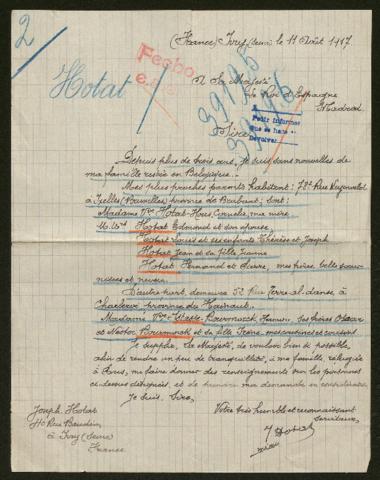 2
(France) Ivry (Seine) le 11 Août 1917.
Hotat
Fecho
A Sa Majesté
le Roi d'Espagne
Madrid
39126
Pedir informes
que se hace
Devolver
Sire,
Depuis plus de trois ans, je suis sans nouvelles de
ma famille restée en Belgique.
Mes plus proches parents habitent: 78, Rue
à Ixelles (Bruxelles) province de Brabant; sont:
Madame Vve Hotat Cornélie, ma mère
M. Hotat Edmond et son épouse,
Hotat Louis et ses enfants Thérèse et Joseph
Hotat Jean et sa fille Jeanne
Hotat Fernand et Pierre, mes frères, belles-sœurs
nièces et neveu.
D'autre part, demeure 52 Rue Terre-al-danse à
Charleroi, province de Hainaut,
Madame Vve ses frères Octave
et Nestor et sa fille Irène, mes cousines et cousins.
Je supplie, Sa Majesté, de vouloir bien si possible,
afin de rendre un peu de tranquillité, à ma famille, réfugiée
à Paris, me faire donner des renseignements sur les personnes
ci-dessus désignées, et de prendre ma demande en considération.
Je suis, Sire,
Votre très humble et reconnaissant
serviteur,
J Hotat
Joseph Hotat
40 Rue Baudin
à Ivry (Seine)
France